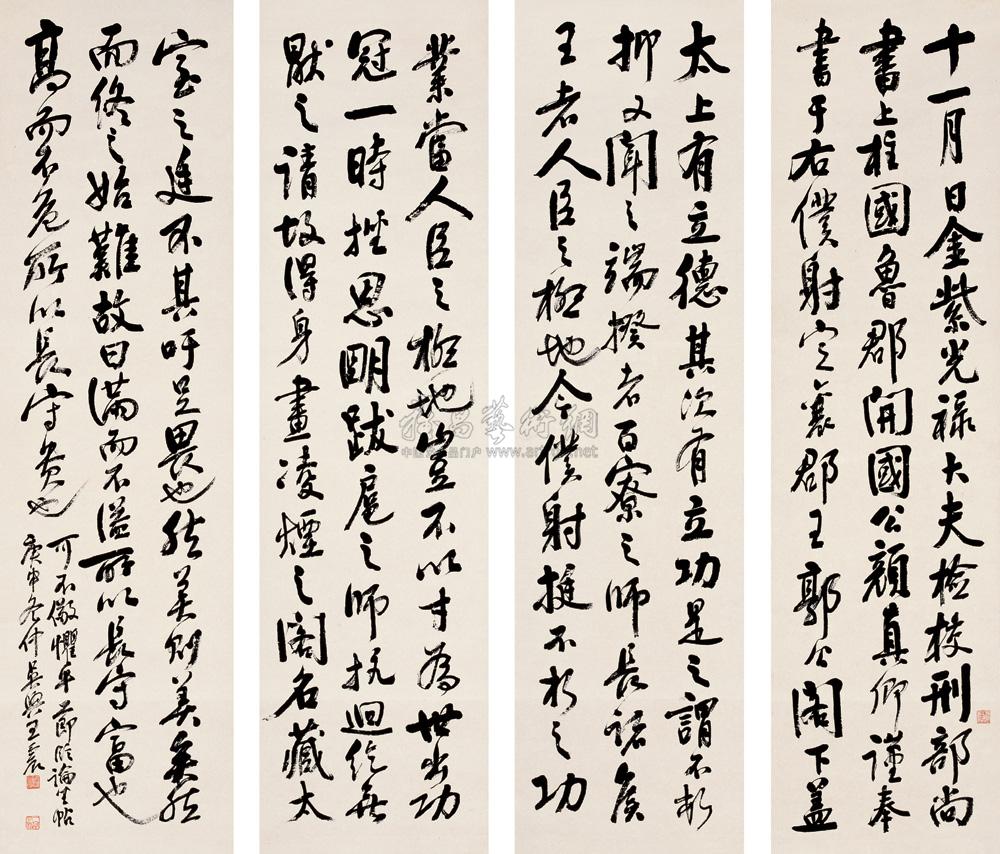 十一月日金紫光禄大夫檢校刑部尚
書上柱國魯郡開國公顏真卿謹奉
書于右僕射定襄郡王郭公閣下蓋
太上有立德其次有立功是之謂不朽
抑又聞之端揆者百寮之師長諸侯
王者人臣之極地今僕射挺不朽之功
業當人臣之極地豈不以才為世出功
冠一時挫思明跋扈之師抗迴紇無
厭之請故得身畫凌煙之閣名藏太
室之廷不其吁足畏也然美則美矣然
而終之始難故曰滿而不溢所以長守富也
高而不危所以長守貴也
可不儆懼乎節臨論坐帖
庚申冬仲吳興王震
雅昌藝術網